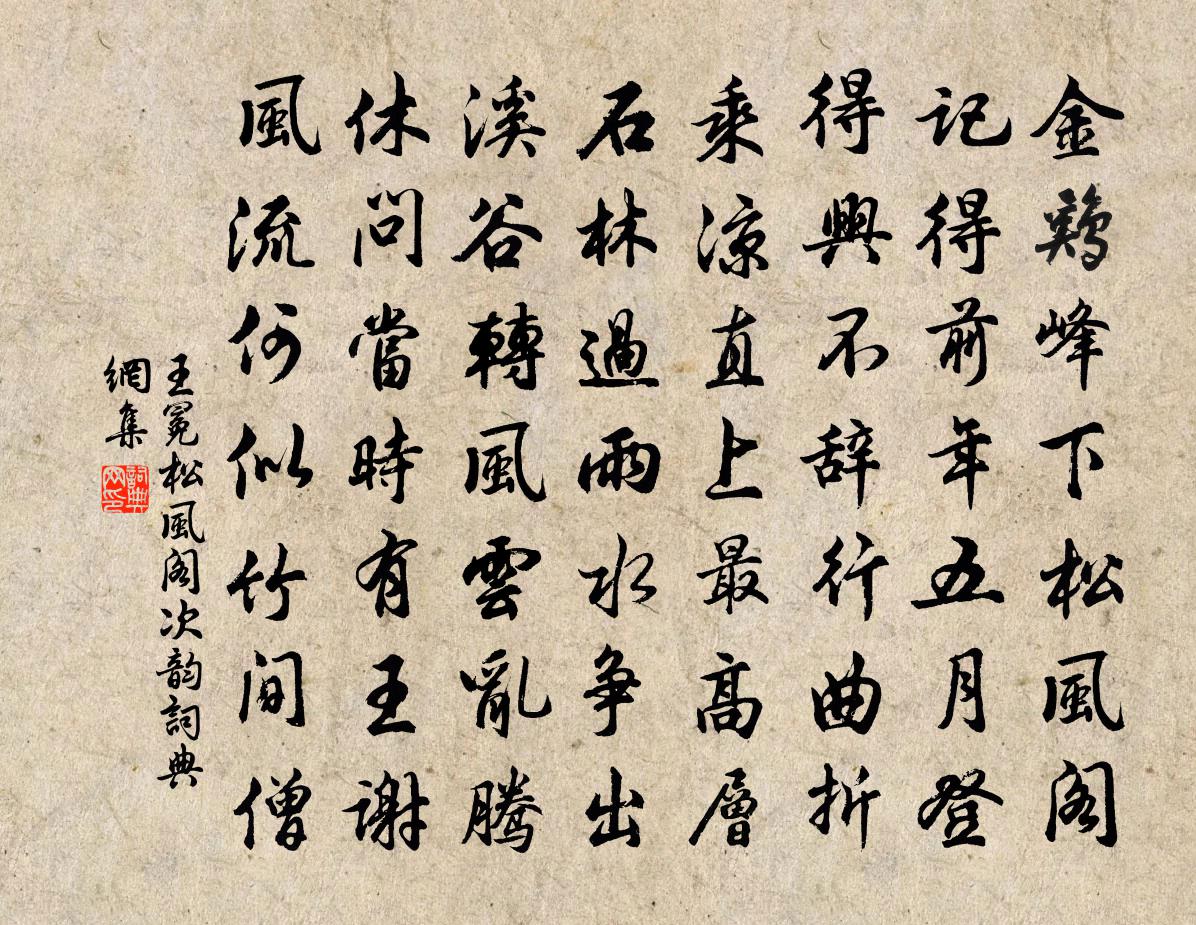 金鷄峰下松風閣
記得前年五月登
得興不辞行曲折
乘涼直上最高層
石林過雨水争出
溪谷轉風雲亂騰
休問當時有王謝
風流何似竹間僧
王冕松風阁次韵詞典
網集
詞典
网印